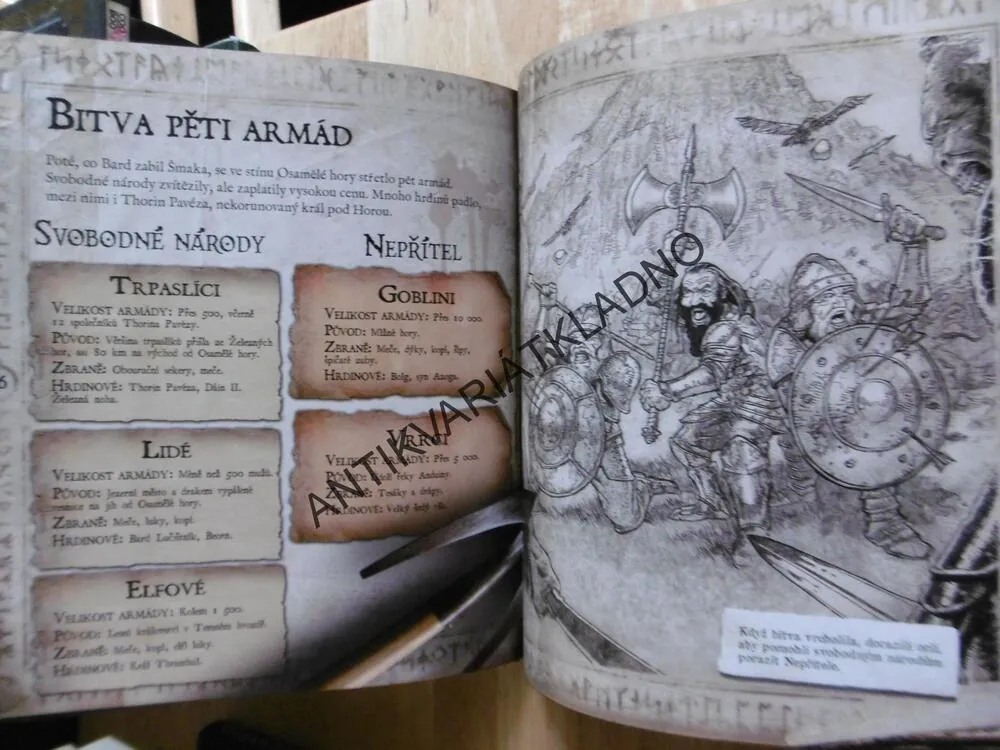 BITVA PĚTI ARMÁD
Poté, co Bard zabil Šmaka, se ve stínu Osamělé hory střetlo pět armád.
Svobodné národy zvítězily, ale zaplatily vysokou cenu. Mnoho hrdinů padlo,
mezi nimi i Thorin Pavéza, nekorunovaný král pod Horou.
SVOBODNÉ NÁRODY
TRPASLÍCI
VELIKOST ARMÁDY: Přes 500, včetně
12 společníků Thorina Pavézy.
PŮVOD: Většina trpaslíků přišla ze Železných
hor, asi 80 km na východ od Osamělé hory.
ZBRANĚ: Obouruční sekery, meče.
HRDINOVÉ: Thorin Pavéza, Dáin II.
Železná noha.
LIDÉ
VELIKOST ARMÁDY: Méně než 500 mužů.
PŮVOD: Jezerní město a drakem vypálené
vesnice na jih od Osamělé hory.
ZBRANĚ: Meče, luky, kopí.
HRDINOVÉ: Bard Lučištník, Beorn.
ELFOVÉ
VELIKOST ARMÁDY: Kolem 1 500.
PŮVOD: Lesní království v Temném hvozdě.
ZBRANĚ: Meče, kopí, dlouhé luky.
HRDINOVÉ: Král Thranduil.
NEPŘÍTEL
GOBLINI
VELIKOST ARMÁDY: Přes 10 000.
PŮVOD: Mlžné hory.
ZBRANĚ: Meče, dýky, kopí, šípy,
špičaté zuby.
HRDINOVÉ: Bolg, syn Azoga.
VRRCI
VELIKOST ARMÁDY: Přes 5 000.
PŮVOD: Údolí řeky Anduiny.
ZBRANĚ: Tesáky a drápy.
HRDINOVÉ: Velký šedý vlk.
Když bitva vrcholila, dorazili orli,
aby pomohli svobodným národům
porazit Nepřítele.
ANTIKVARIÁTKLADNO